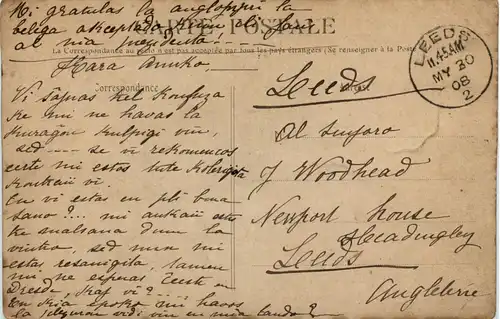 Mi gratulas la
belega akceptado, kiun oli faro
al nia
CARTE POSTALE
La Correspondance au recto n'est pas acceptée par tous les pays étrangers (Se renseigner à la Poste)
Kara Amiko,
Correspondance
Vi ŝajnas tiel
ke mi ne havas la
kuraĝon kulpigi vin,
sed --- se vi rekomencos
certe mi estos tute kolerigita
kontraŭ vi.
Ĉu vi estas en pli bona
sano?... mi ankaŭ estis
tre malsana dum la
vintro, sed nun mi
estas resanigita, tamen
mi ne esperas ĉeesti en
Dresde, kaj vi?
En kia epoko mi havos
la plezuron vidi vin en mia lando?
LEEDS
11.45AM
MY 30
08
2
Leeds
Al sinjoro
J Woodhead
Newport House
Headingley
Leeds
Angleterre